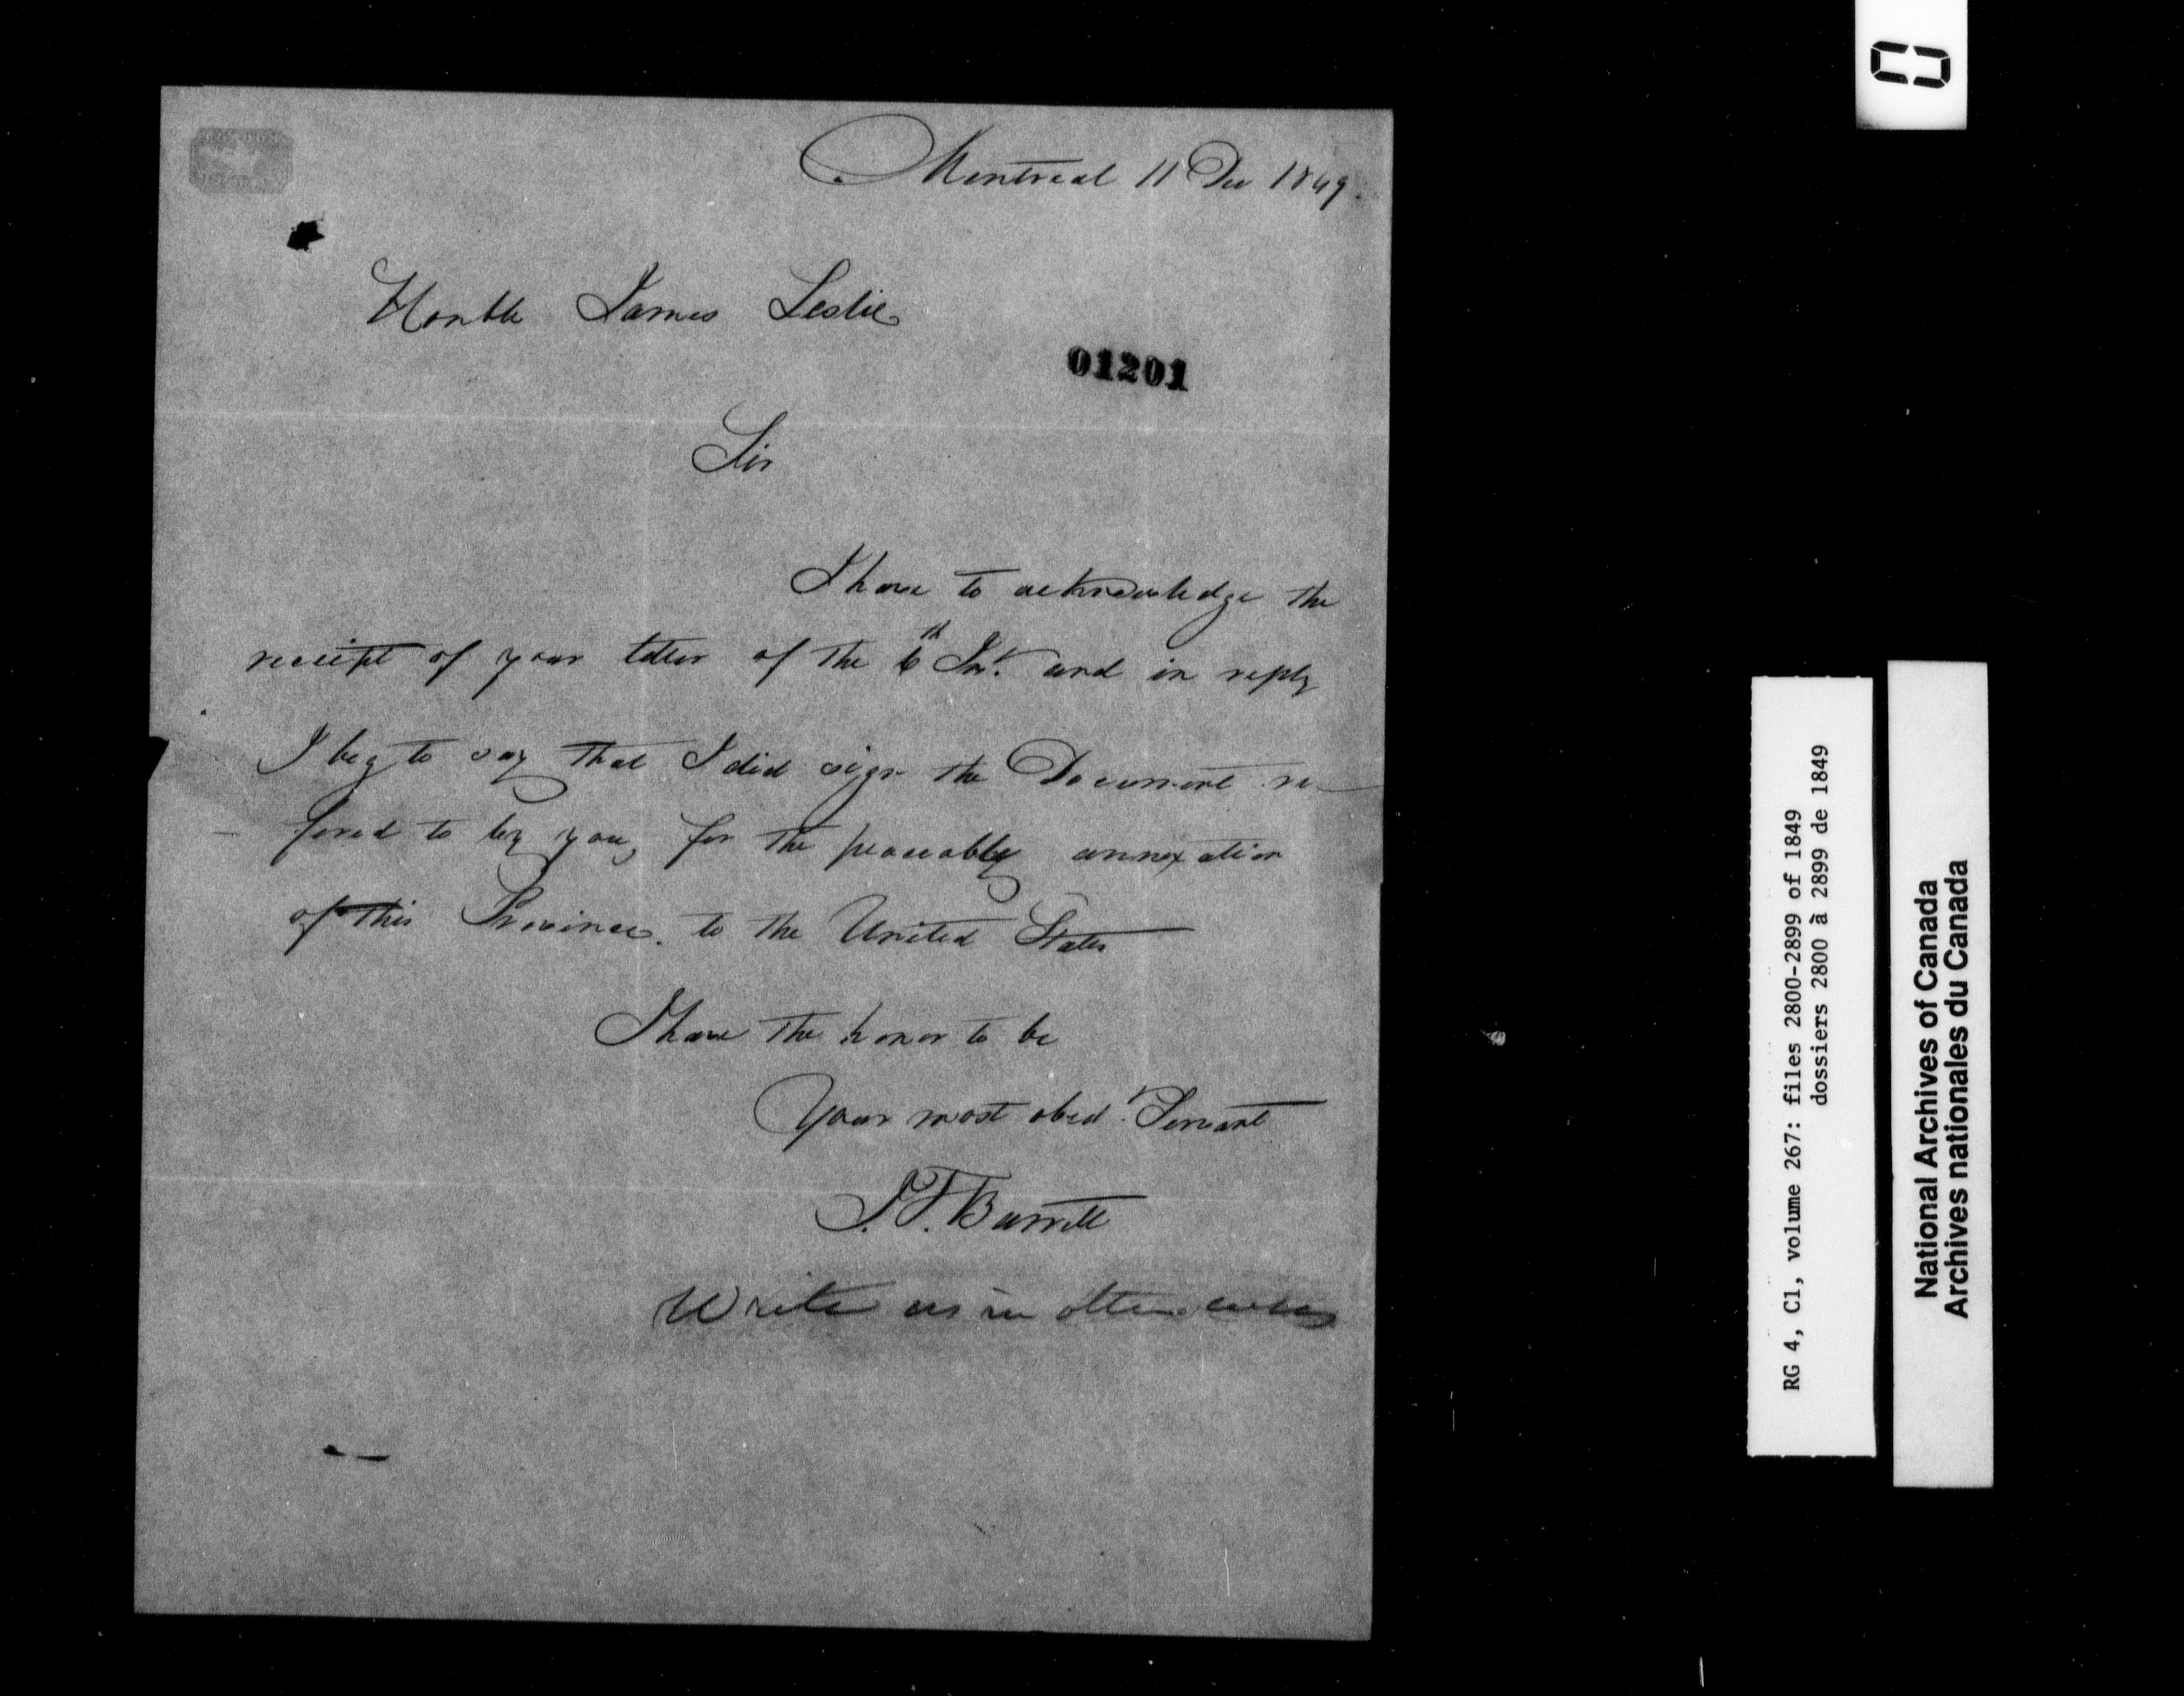 Montreal 11 Dec 1849.
Honble James Leslie
01201
Sir
I have to acknowledge the
receipt of your letter of the 6th Inst. and in reply
I beg to say that I did sign the Document re-
fered to by you, for the peaceably annexation
of this Province. to the United States
I have the honor to be
Your most obedt. Servant
J.T. Barrett
Write as in other cases
RG 4, C1, volume 267: files 2800-2899 of 1849
dossiers 2800 à 2899 de 1849
National Archives of Canada
Archives nationales du Canada